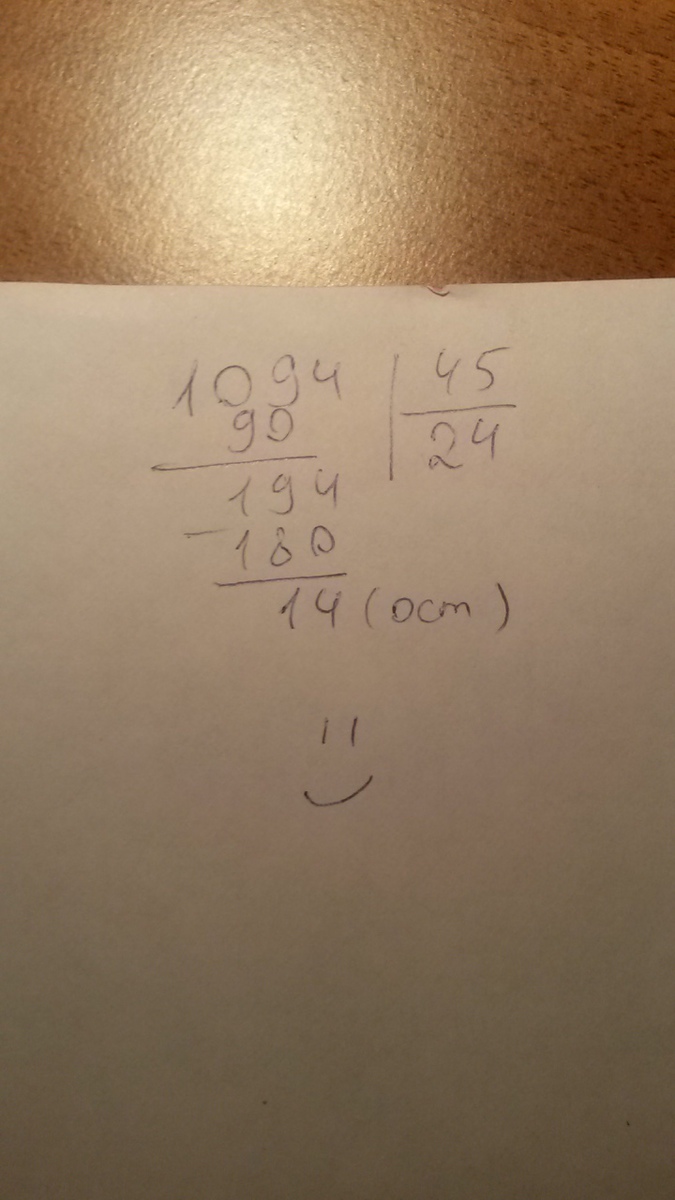 1094 | 45
90 24
194
- 180
14 (ост)